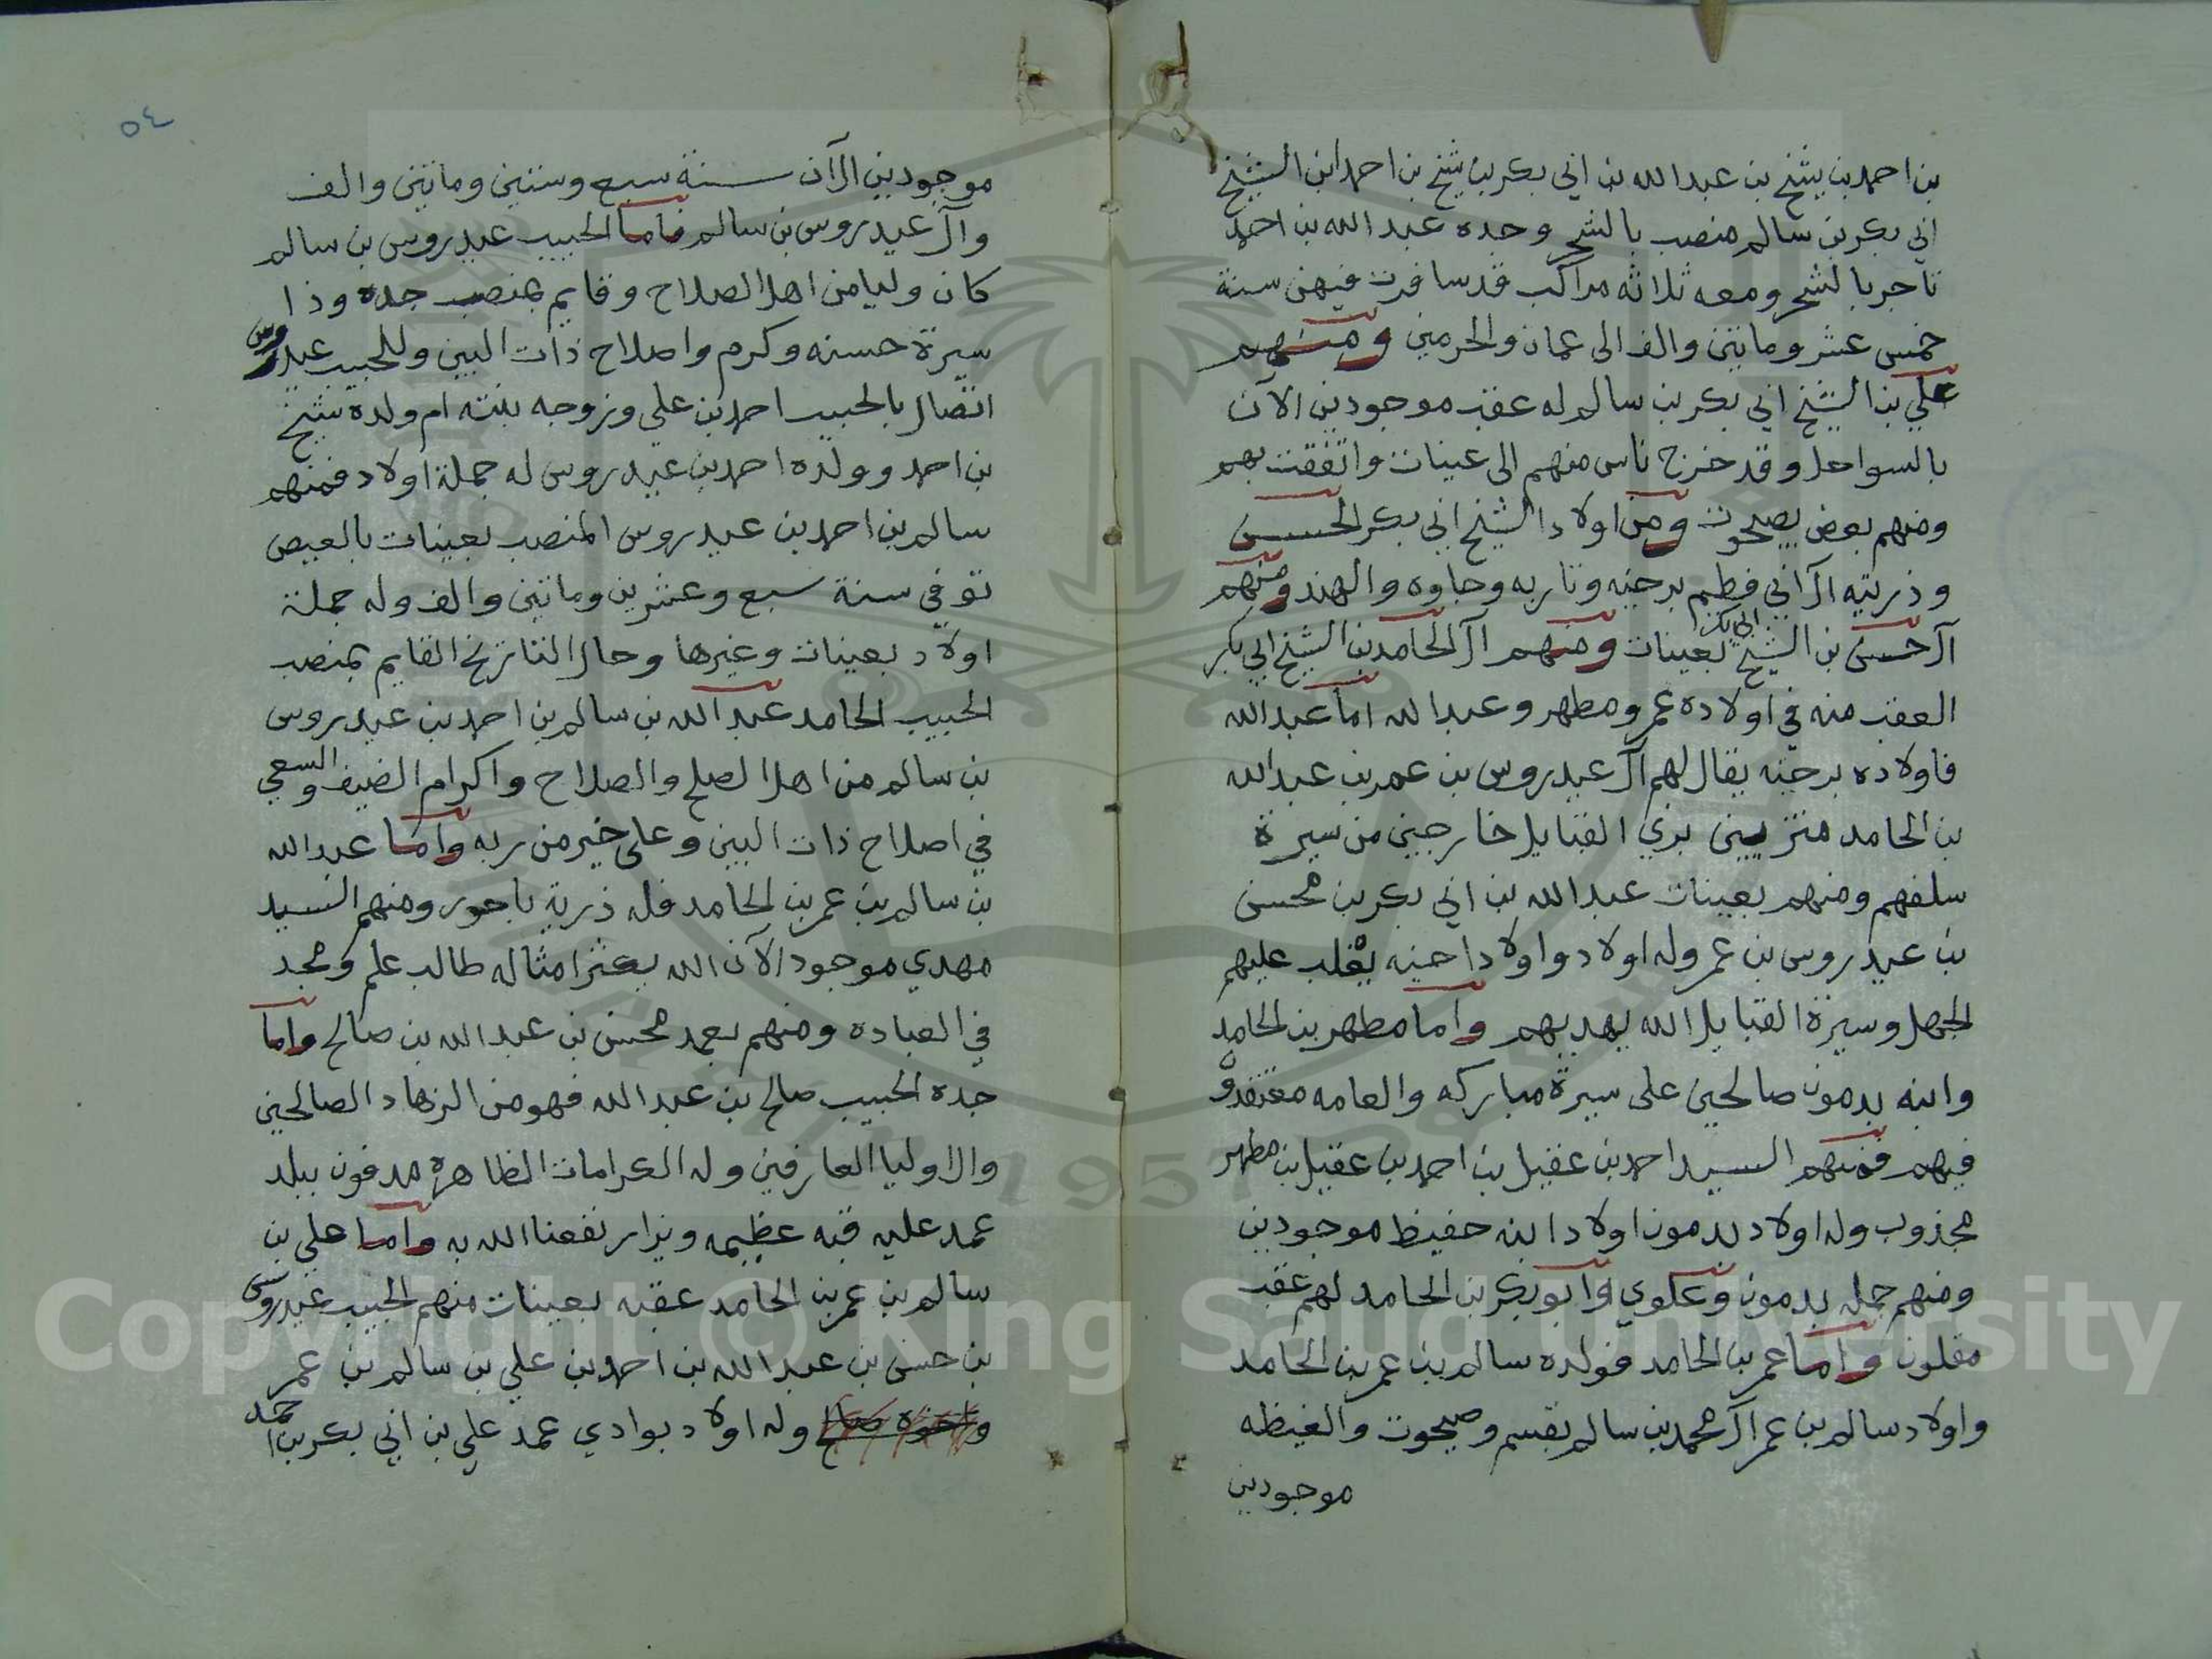 بن احمد بن شيخ بن عبدالله بن ابي بكر بن شيخ بن احمد ابن الشيخ
ابي بكر بن سالم منصب بالشحر وجده عبدالله بن احمد
تاجر بالشحر ومعه ثلاثه مراكب قد سافرت فيهن سنة
خمس عشر وماتين والف الى عمان والحرمين ومنهم
علي بن الشيخ ابي بكر بن سالم له عقب موجودين الآن
بالسواحل وقد خرج ناس منهم الى عينات واتفقت بهم
ومنهم بعض بصيحوت ومن اولاد الشيخ ابي بكر الحسن
وذريته آل ابي فطيم برحبنه وتاربه وجاوه والهند ومنهم
آل حسن بن الشيخ ابي بكر بعينات ومنهم آل الحامد بن الشيخ ابي بكر
العقب منه في اولاده عمر ومطهر وعبدالله اما عبدالله
فاولاده برحبنه يقال لهم آل عيدروس بن عمر بن عبدالله
بن الحامد متزيين بزي القبايل خارجين من سيرة
سلفهم ومنهم بعينات عبدالله بن ابي بكر بن محسن
بن عيدروس بن عمر وله اولاد واولاد اخيه يغلب عليهم
الجهل وسيرة القبايل الله يهديهم واما مطهر بن الحامد
وابنه بدمون صالحين على سيرة مباركه والعامه معتقده
فيهم فمنهم السيد احمد بن عقيل بن احمد بن عقيل بن مطهر
مجذوب وله اولاد بدمون اولاد ابنه حفيظ موجودين
ومنهم جمله بدمون وعلوي وابو بكر بن الحامد لهم عقب
مقلون واما عمر بن الحامد فولده سالم بن عمر بن الحامد
واولاد سالم بن عمر آل محمد بن سالم بقسم وصيحوت والغيظه
موجودين
٥٤
موجودين الآن سنة سبع وستين وماتين والف
وآل عيدروس بن سالم فاما الحبيب عيدروس بن سالم
كان وليا من اهل الصلاح وقايم بمنصب جده وذا
سيرة حسنه وكرم واصلاح ذات البين وللحبيب عيدروس
اتصال بالحبيب احمد بن علي وزوجه بنته ام ولده شيخ
بن احمد وولده احمد بن عيدروس له جملة اولاد فمنهم
سالم بن احمد بن عيدروس المنصب بعينات بالعيص
توفي سنة سبع وعشرين وماتين والف وله جملة
اولاد بعينات وغيرها وحال التاريخ القايم بمنصب
الحبيب الحامد عبدالله بن سالم بن احمد بن عيدروس
بن سالم من اهل الصلح والصلاح واكرام الضيف والسعي
في اصلاح ذات البين وعلى خير من ربه واما عبدالله
بن سالم بن عمر بن الحامد فله ذرية باحور ومنهم السيد
مهدي موجود الآن الله يكثر امثاله طالب علم ومجد
في العباده ومنهم بعمد محسن بن عبدالله بن صالح واما
جده الحبيب صالح بن عبدالله فهو من الزهاد الصالحين
والاوليا العارفين وله الكرامات الظاهره مدفون ببلد
عمد عليه قبه عظيمه ويزار نفعنا الله به واما علي بن
سالم بن عمر بن الحامد عقبه بعينات منهم الحبيب عيدروس
بن حسن بن عبدالله بن احمد بن علي بن سالم بن عمر
واخوه صالح وله اولاد بوادي عمد علي بن ابي بكر بن احمد
Copyright © King Saud University
1957